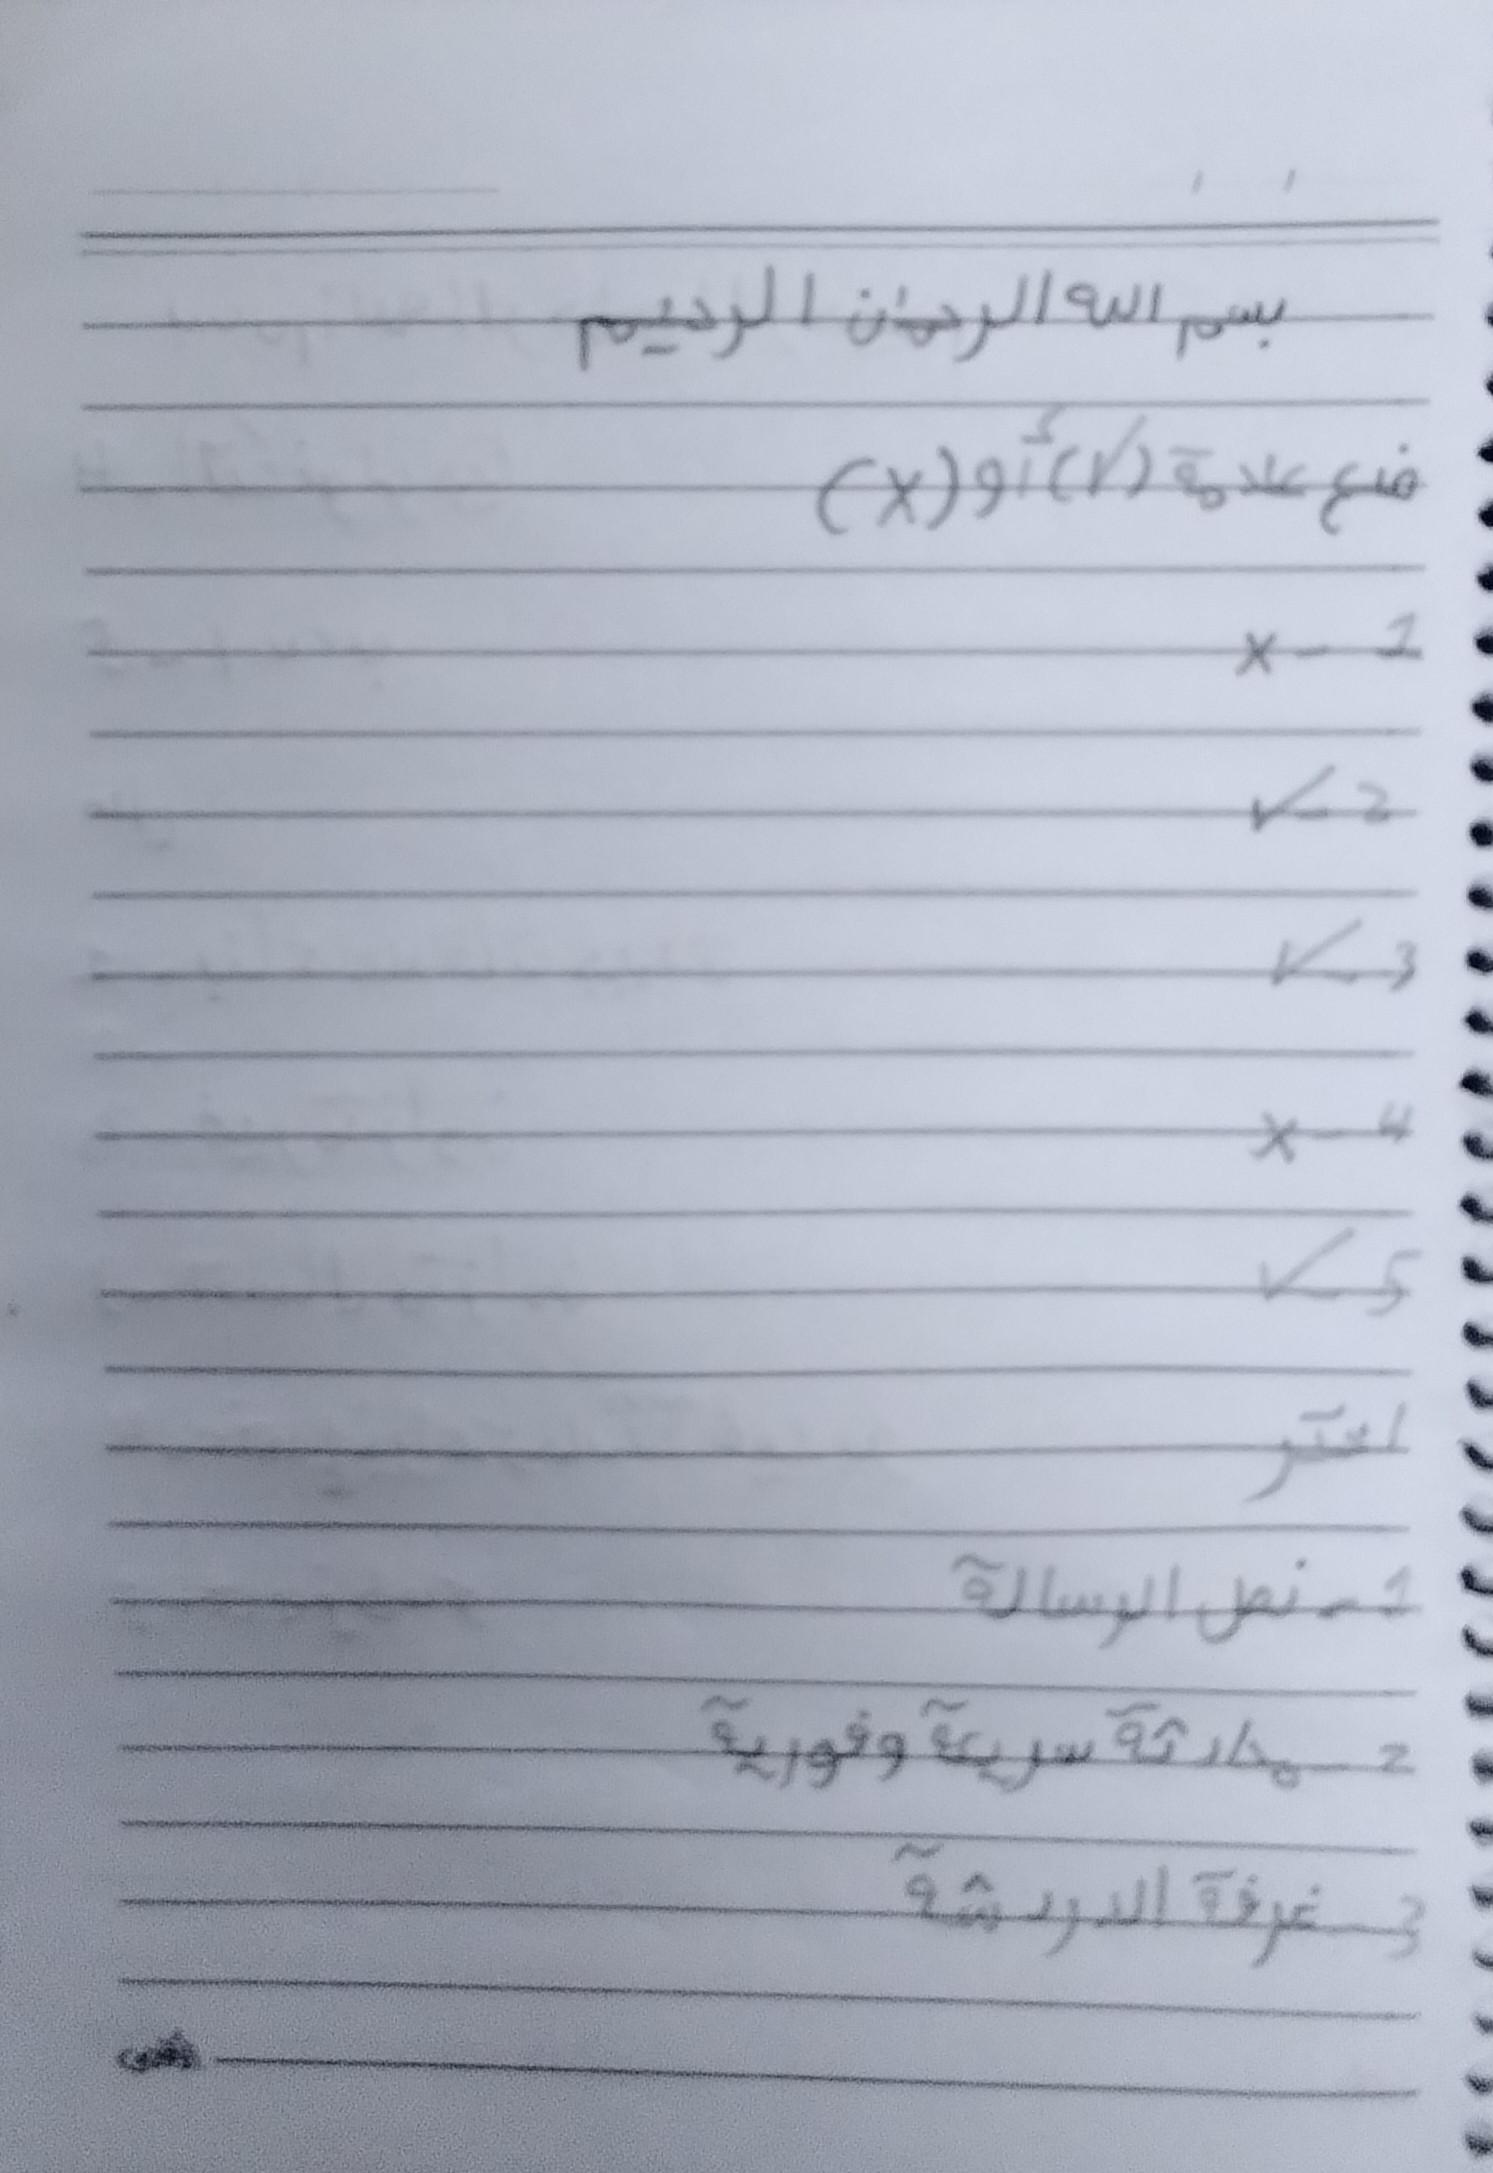 بسم الله الرحمن الرحيم
ضع علامة (✓) أو (x)
1 - x
2 - ✓
3 - ✓
4 - x
5 - ✓
اختر
1 - نص الرسالة
2 - محادثة سريعة وفورية
3 - غرفة الدردشة